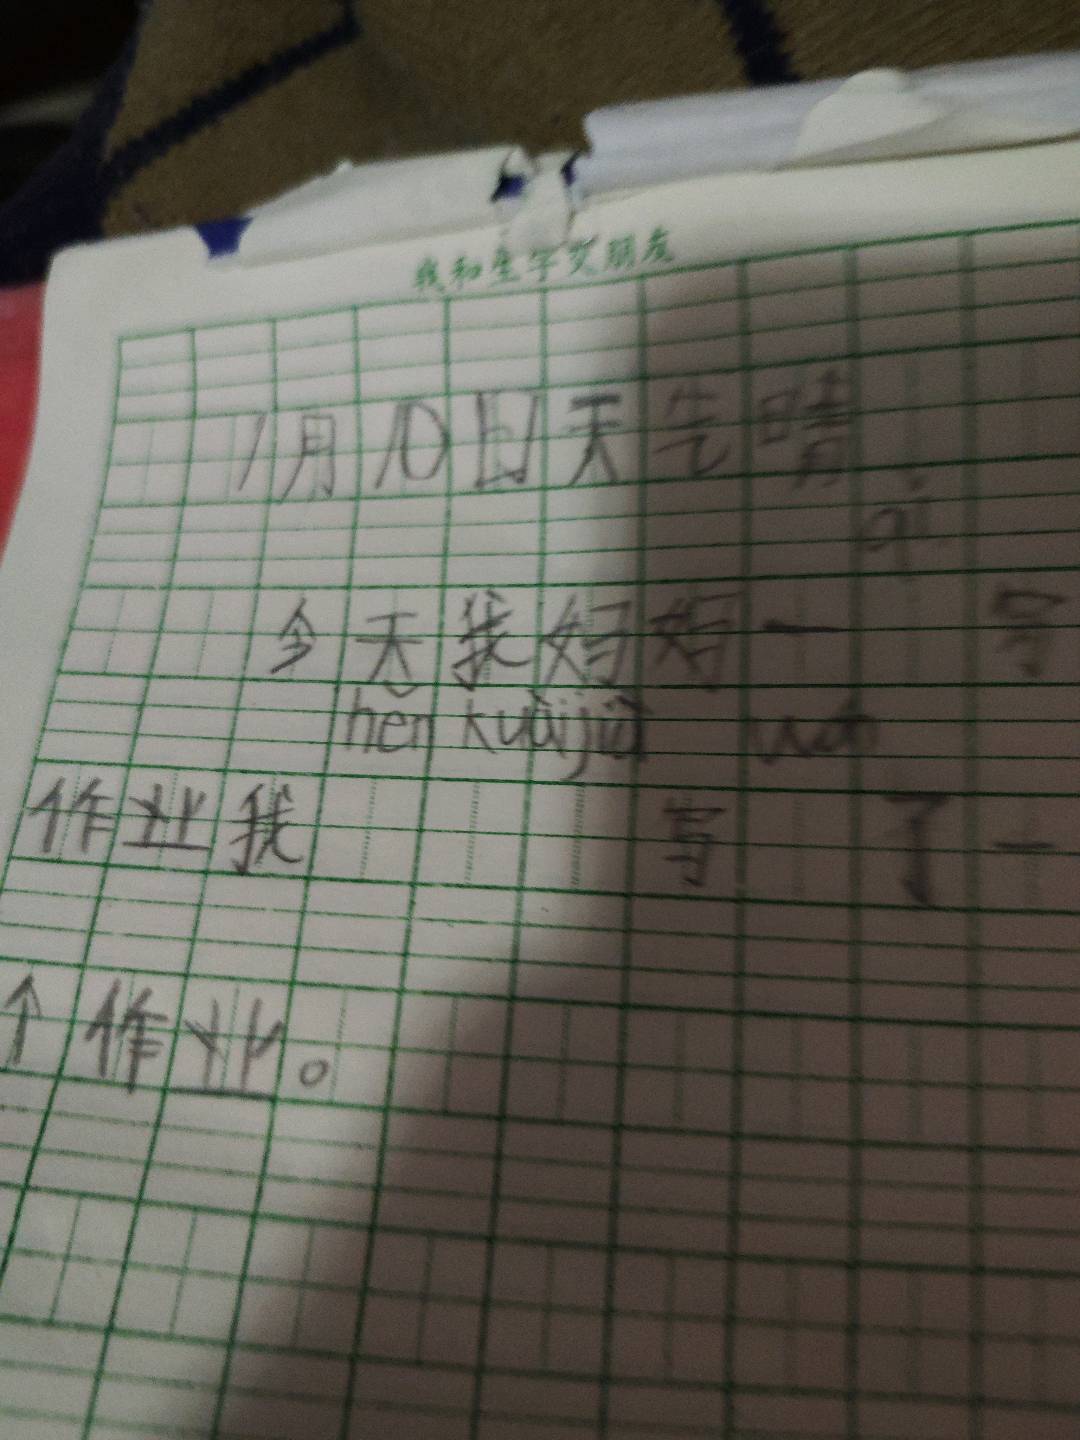 我和生字交朋友
1月10日天气晴
qi
今天我好好一 写
hěn kuài jiù wán
作业我 写 了一
个作业。